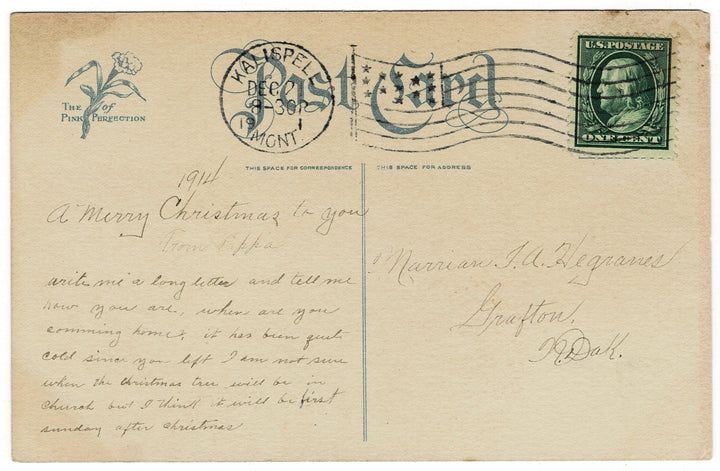 The Pink of Perfection
Post Card
KALISPELL
DEC 21
8-30P
191
MONT.
U.S. POSTAGE
ONE CENT
THIS SPACE FOR CORRESPONDENCE
THIS SPACE FOR ADDRESS
1914
A Merry Christmas to you
From Pappa
write me a long letter and tell me
how you are, when are you
comming home, it has been quit
cold since you left I am not sure
when the christmas tree will be in
church but I think it will be first
sunday after christmas
Marrian I. A. Hegranes
Grafton,
N. Dak.